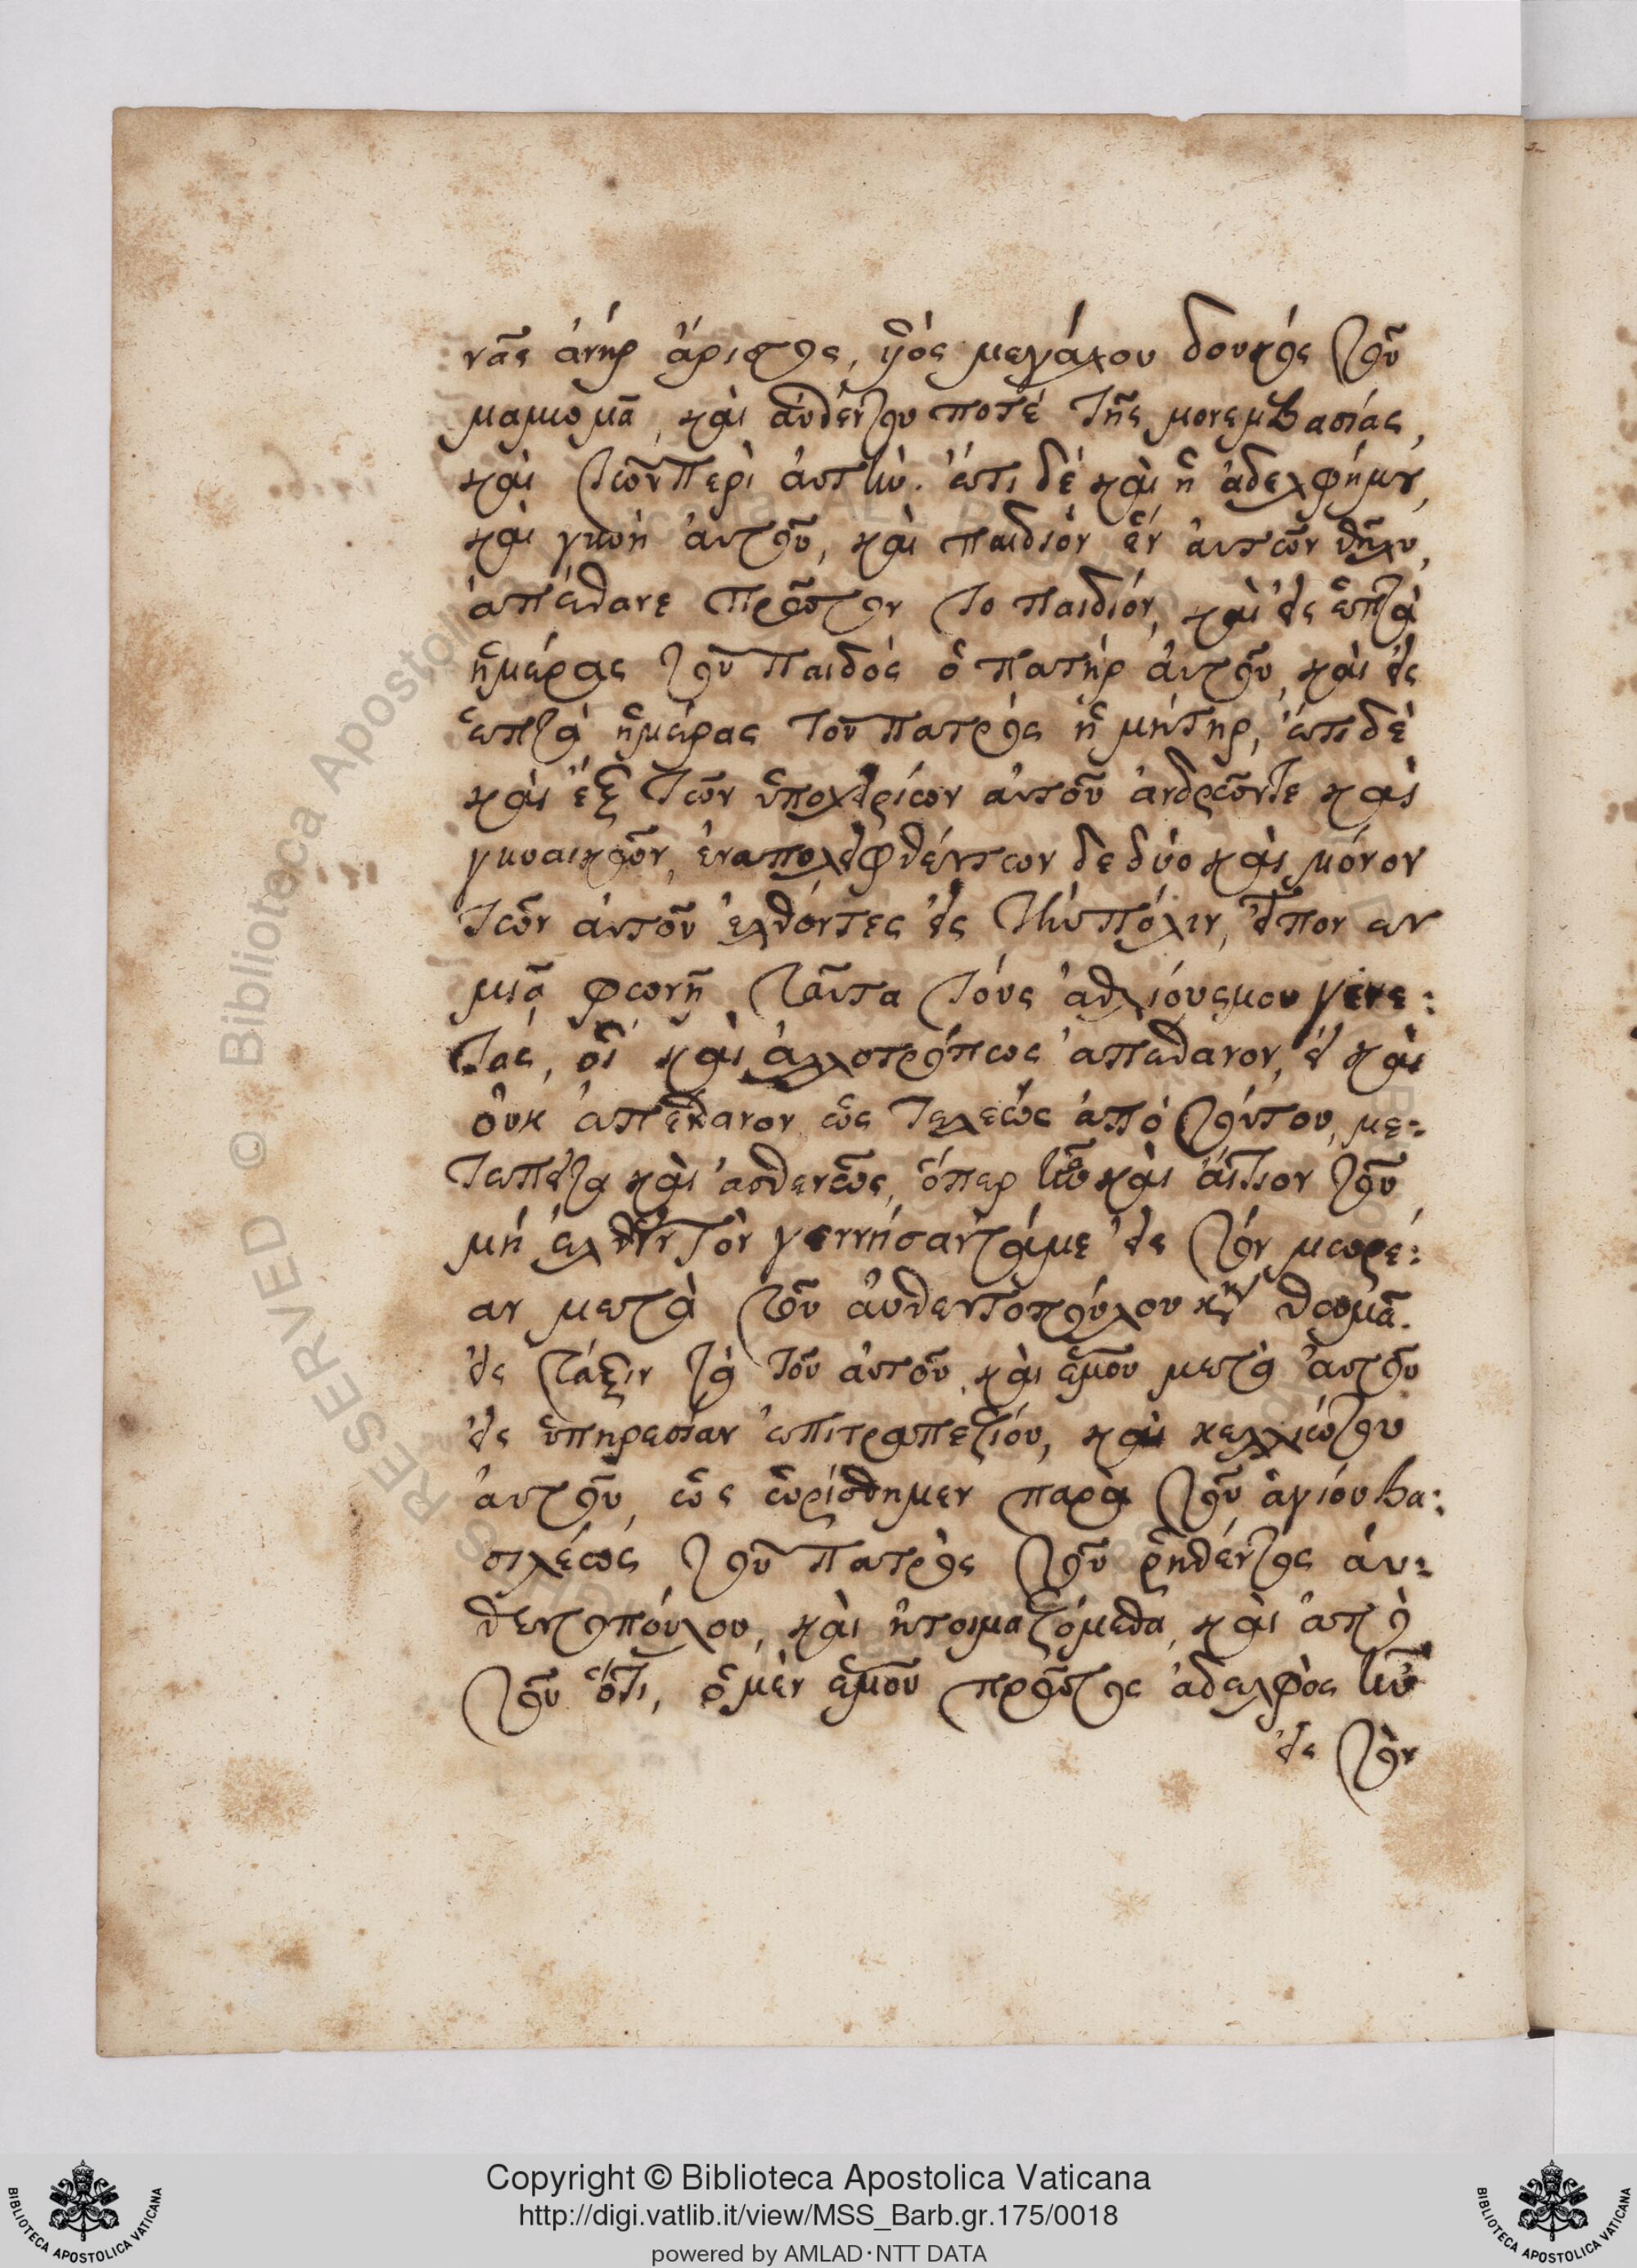 νᾶς ἀνήρ ἄριστος, ὑϊὸς μεγάλου δουκός τοῦ
μαμωμᾶ, καὶ ἀυθέντου ποτέ τῆς μονεμβασίας,
καὶ τῶν περὶ ἀυτὴν. ἔτι δέ καὶ ἡ ἀδελφήμου,
καὶ γυνὴ ἀυτοῦ, καὶ παιδιὸν ἕν ἀυτῶν θῆλυ,
ἀπέθανε πρῶτον το παιδιόν, καὶ εἰς ἑπτὰ
ἡμέρας τοῦ παιδὸς ὁ πατὴρ ἀυτοῦ, καὶ εἰς
ἑπτὰ ἡμέρας τοῦ πατρός ἡ μήτηρ, ἔτι δὲ
καὶ ἕξ τῶν ὑποχειρίων ἀυτοῦ ἀνδρῶντε καὶ
γυναικῶν, ἐναπολειφθέντων δε δύο καὶ μόνον
τῶν ἀυτοῦ ἐλθόντες εἰς τὴν πόλιν, εἶπον εν
μιᾶ φωνῇ ταῦτα τόυς ἀθλιόυςμου γενε:
τας, οἵ καὶ ἀλλοτρόπως ἀπέθανον, εἰ καὶ
ὀυκ ἀπέθανον ὡς τελεώς ἀπό τόυτου, με:
τεπέιτα καὶ ἀσθενῶς, ὅπερ ἦν καὶ ἄιτιον τοῦ
μή ἐλθεῖν τὸν γεννήσαντάμε εἰς τόν μωρέ:
αν μετὰ τοῦ ἀυθεντοπόυλου κυρ θωμᾶ.
εἰς τάξιν τὰ τοῦ ἀυτοῦ, καὶ ἐμοῦ μετὰ ἀυτοῦ
εἰς ὑπηρεσίαν ἐπιτραπεζιόυ, καὶ κελλιώτου
ἀυτοῦ, ὡς ὡρίσθημεν παρὰ τοῦ ἁγιόυ βα:
σιλέως τοῦ πατρὸς τοῦ ῥηθέντος ἀυ:
θεντοπόυλου, καὶ ἡτοιμαζόμεθα, καὶ ἀπὸ
τοῦ ὅτι, ὁ μὲν ἐμοῦ πρῶτος ἀδελφὸς ἦν
εἰς τὸν
Copyright © Biblioteca Apostolica Vaticana
http://digi.vatlib.it/view/MSS_Barb.gr.175/0018
powered by AMLAD·NTT DATA